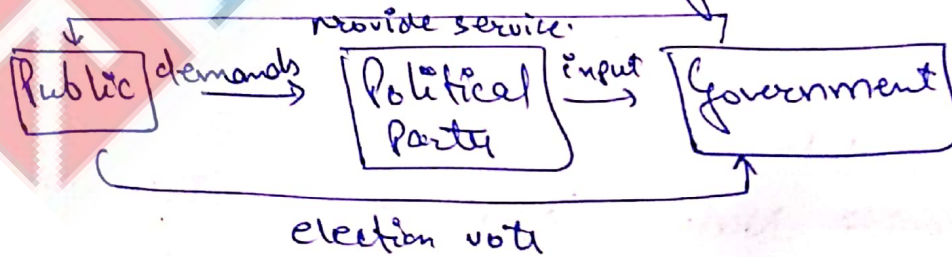 provide service.
Public demands Political Party input Government
election vote